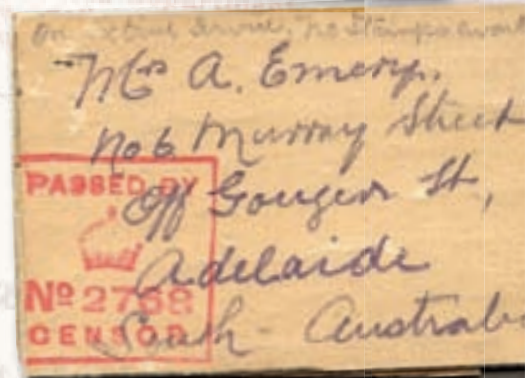 On Active Service, No Stamps avail
Mrs A. Emery.
No 6 Murray Street
Off Gouger St,
Adelaide
South Austral
PASSED BY
No 2768
CENSOR